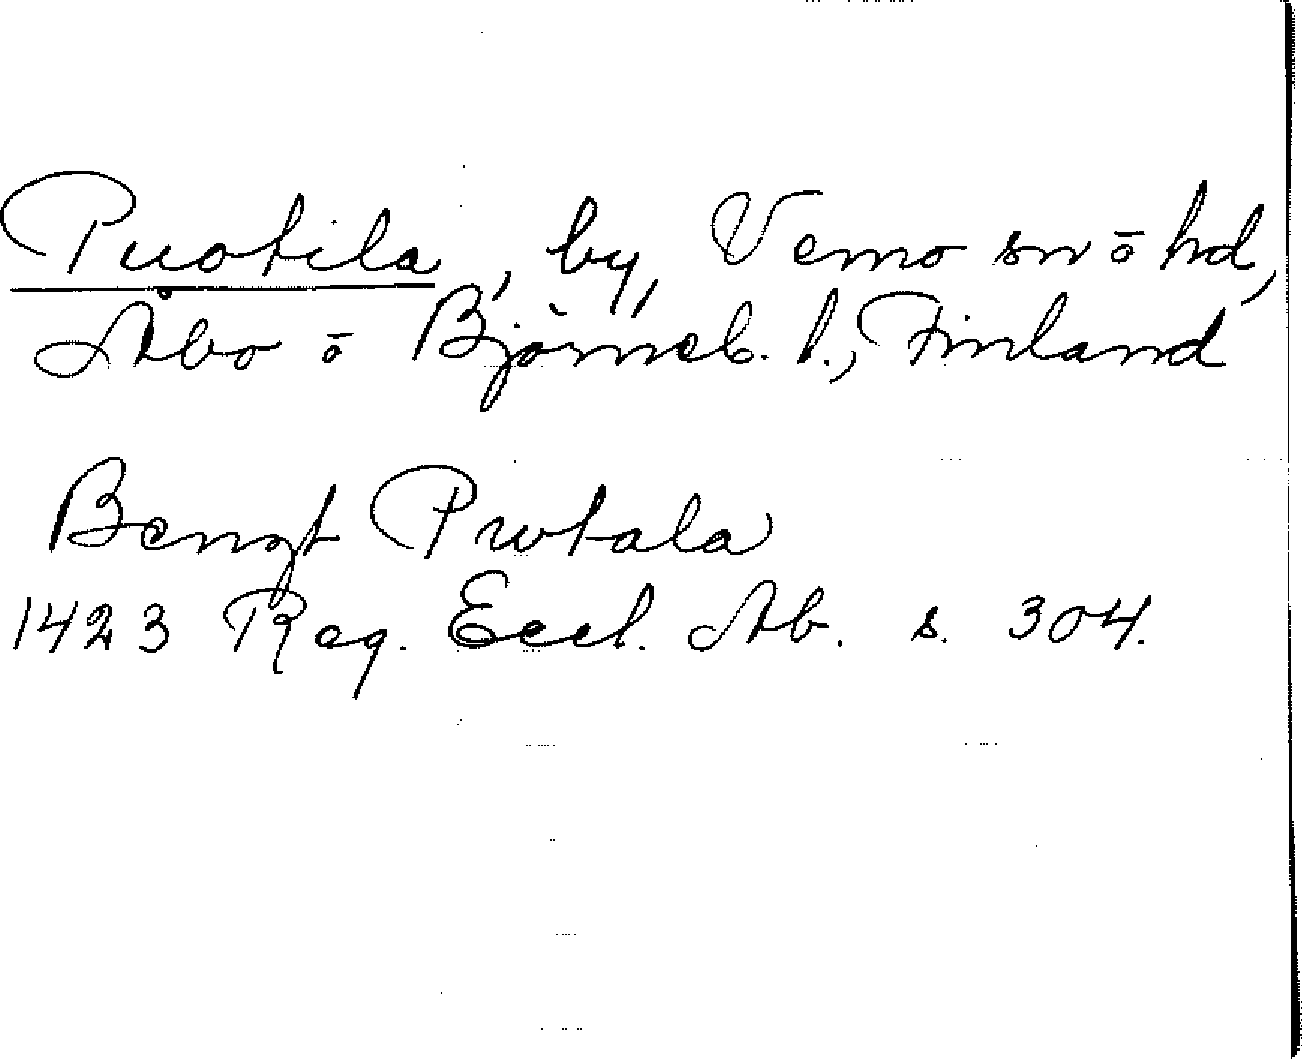 Puotila, by, Vemo sn ō hd,
Åbo ō Björneb. l., Finland
Bengt Pwtala
1423 Reg. Eccl. Ab. s. 304.